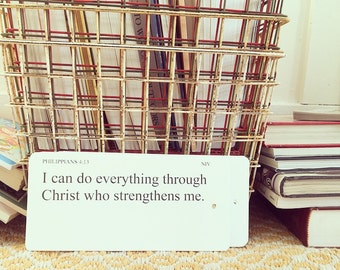 PHILIPPIANS 4:13 NIV
I can do everything through
Christ who strengthens me.